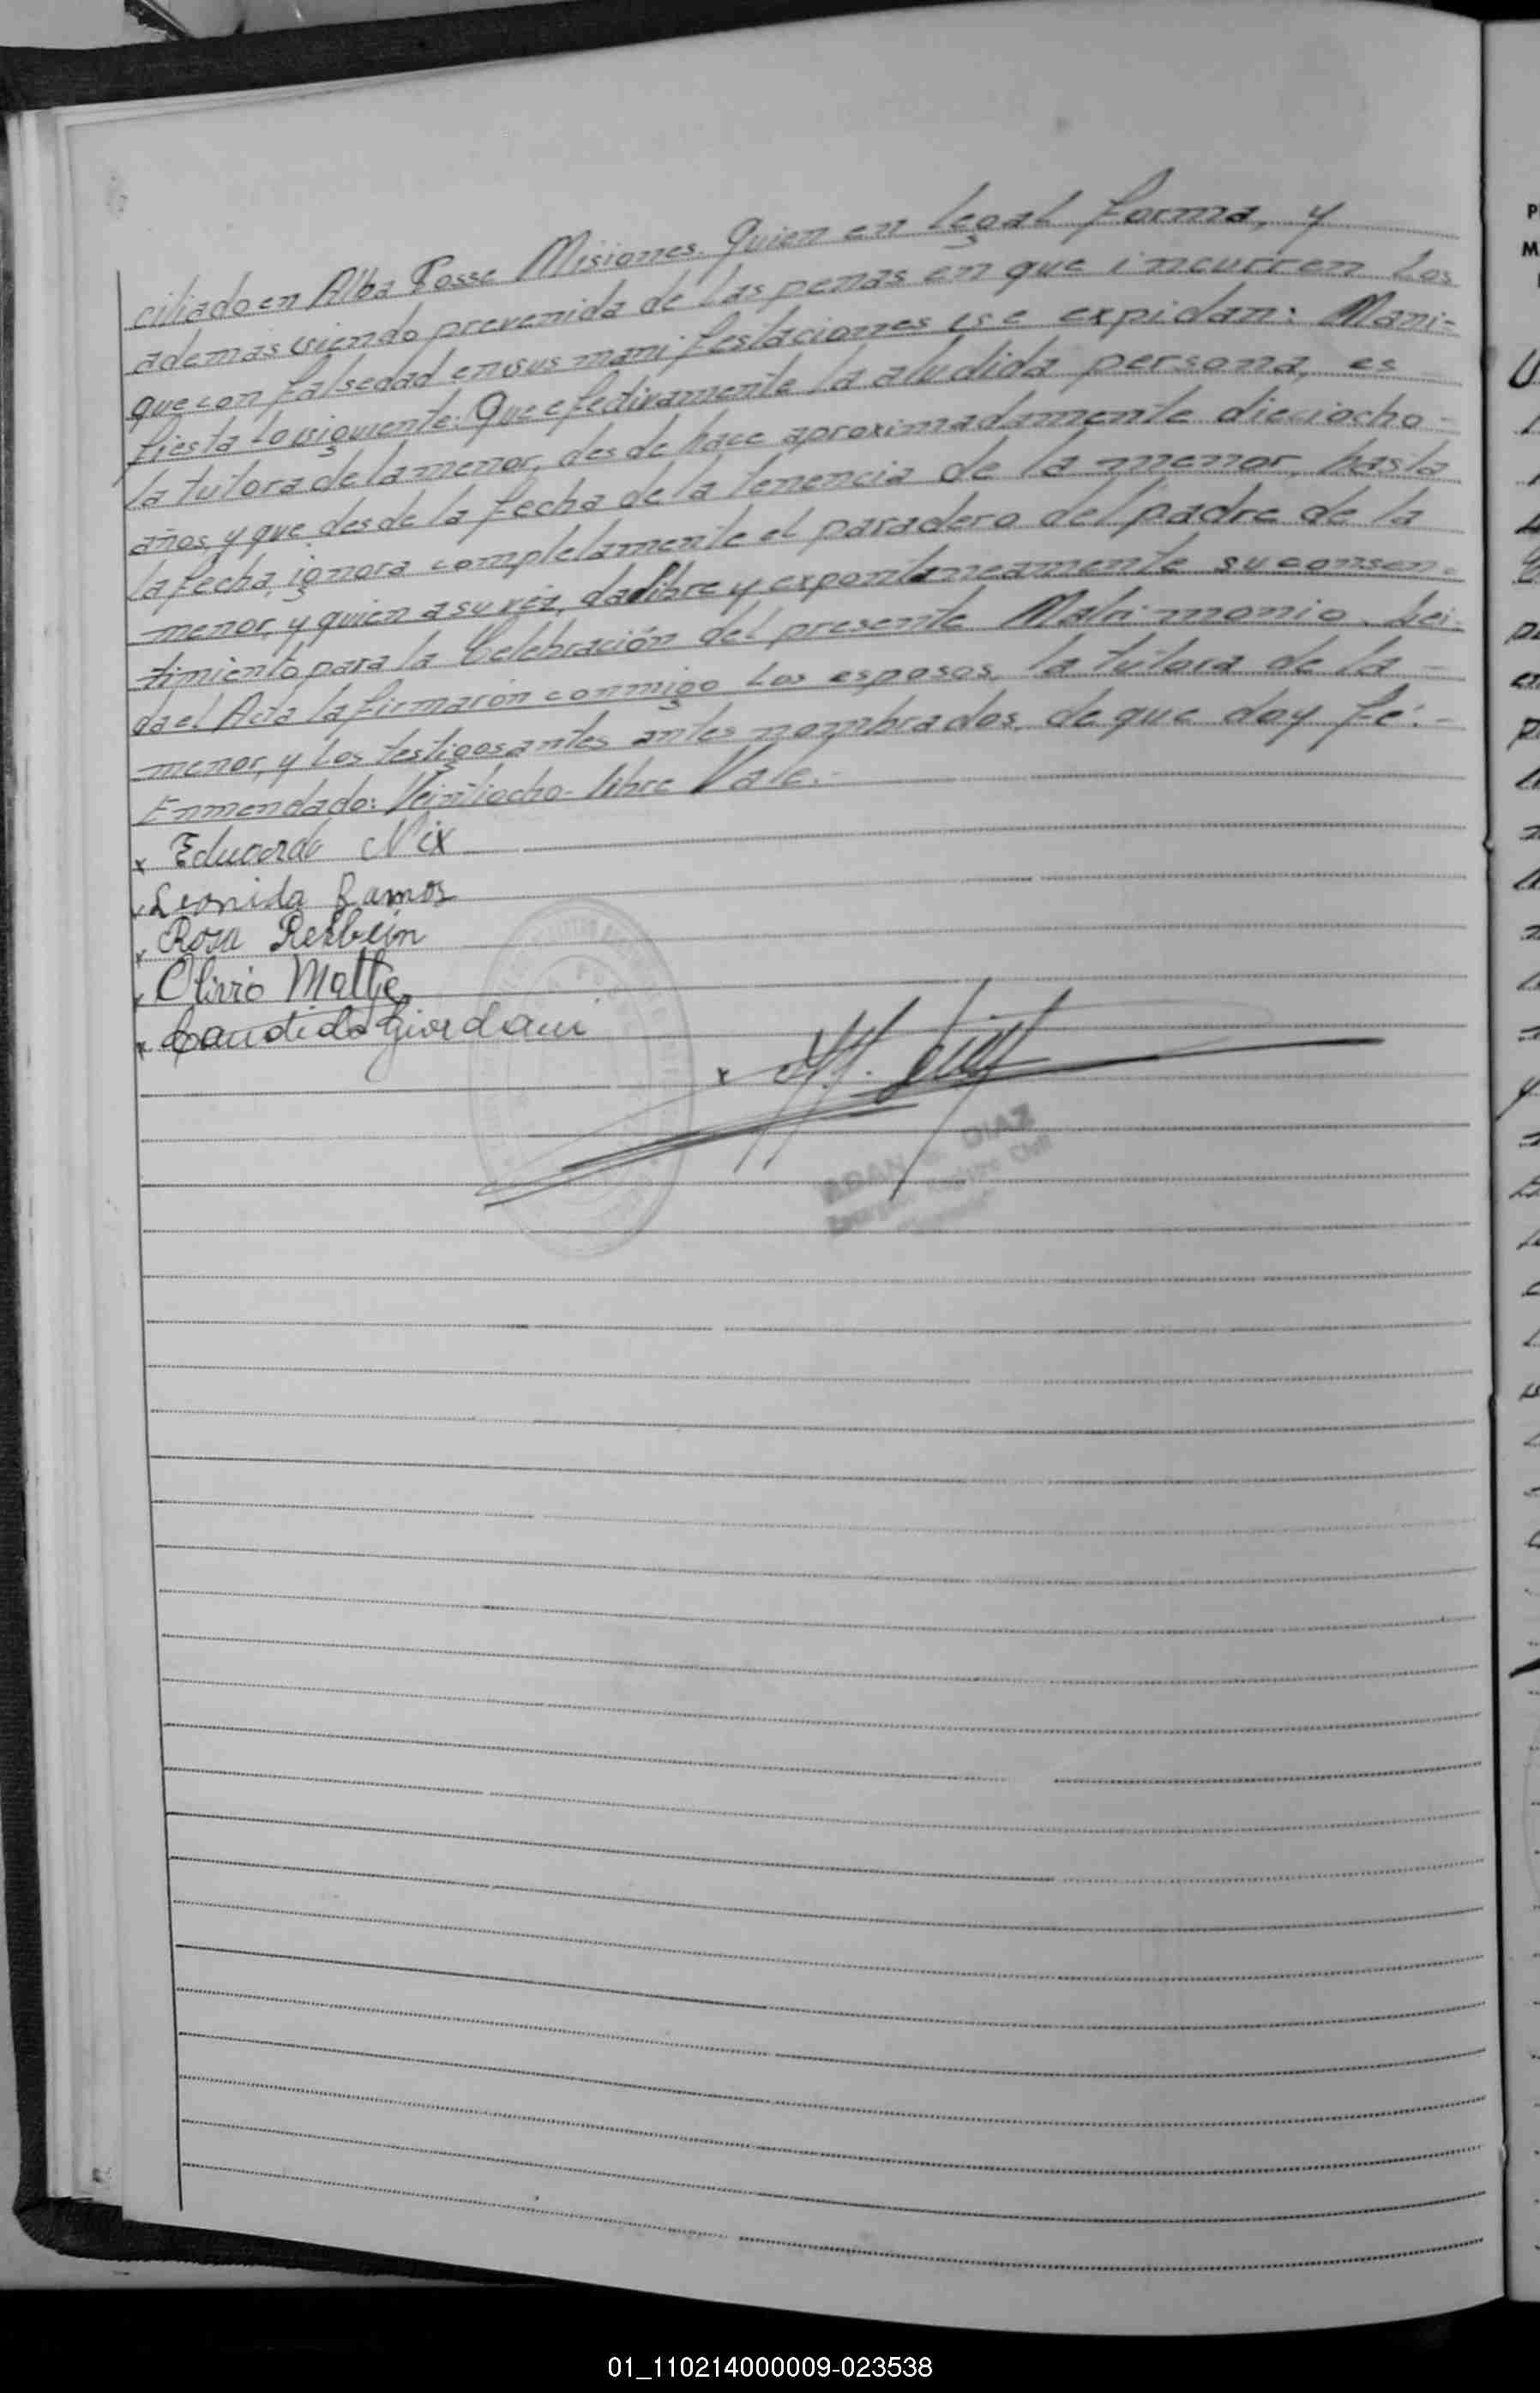 ciliado en Alba Posse Misiones. Quien en legal forma, y
ademas siendo prevenida de las penas en que incurren los
que con falsedad en sus manifestaciones se expidan: Mani-
fiesta lo siguiente: Que efectivamente la aludida persona, es
la tutora de la menor, desde hace aproximadamente dieciocho-
años, y que desde la fecha de la tenencia de la menor, hasta
la fecha, ignora completamente el paradero del padre de la
menor, y quien a su vez, da libre y expontaneamente su consen-
timiento para la Celebración del presente Matrimonio. Lei-
da el Acta la firmarón conmigo los esposos, la tutora de la -
menor, y los testigos antes antes nombrados, de que doy fé.-
Enmendado: Veintiocho- libre Vale.-
x Eduardo Nix
x Leonida Ramos
x Rosa Rehbein
x Olivio Matte
x Candido Giordani
x
DIAZ
Registro Civil
01_110214000009-023538